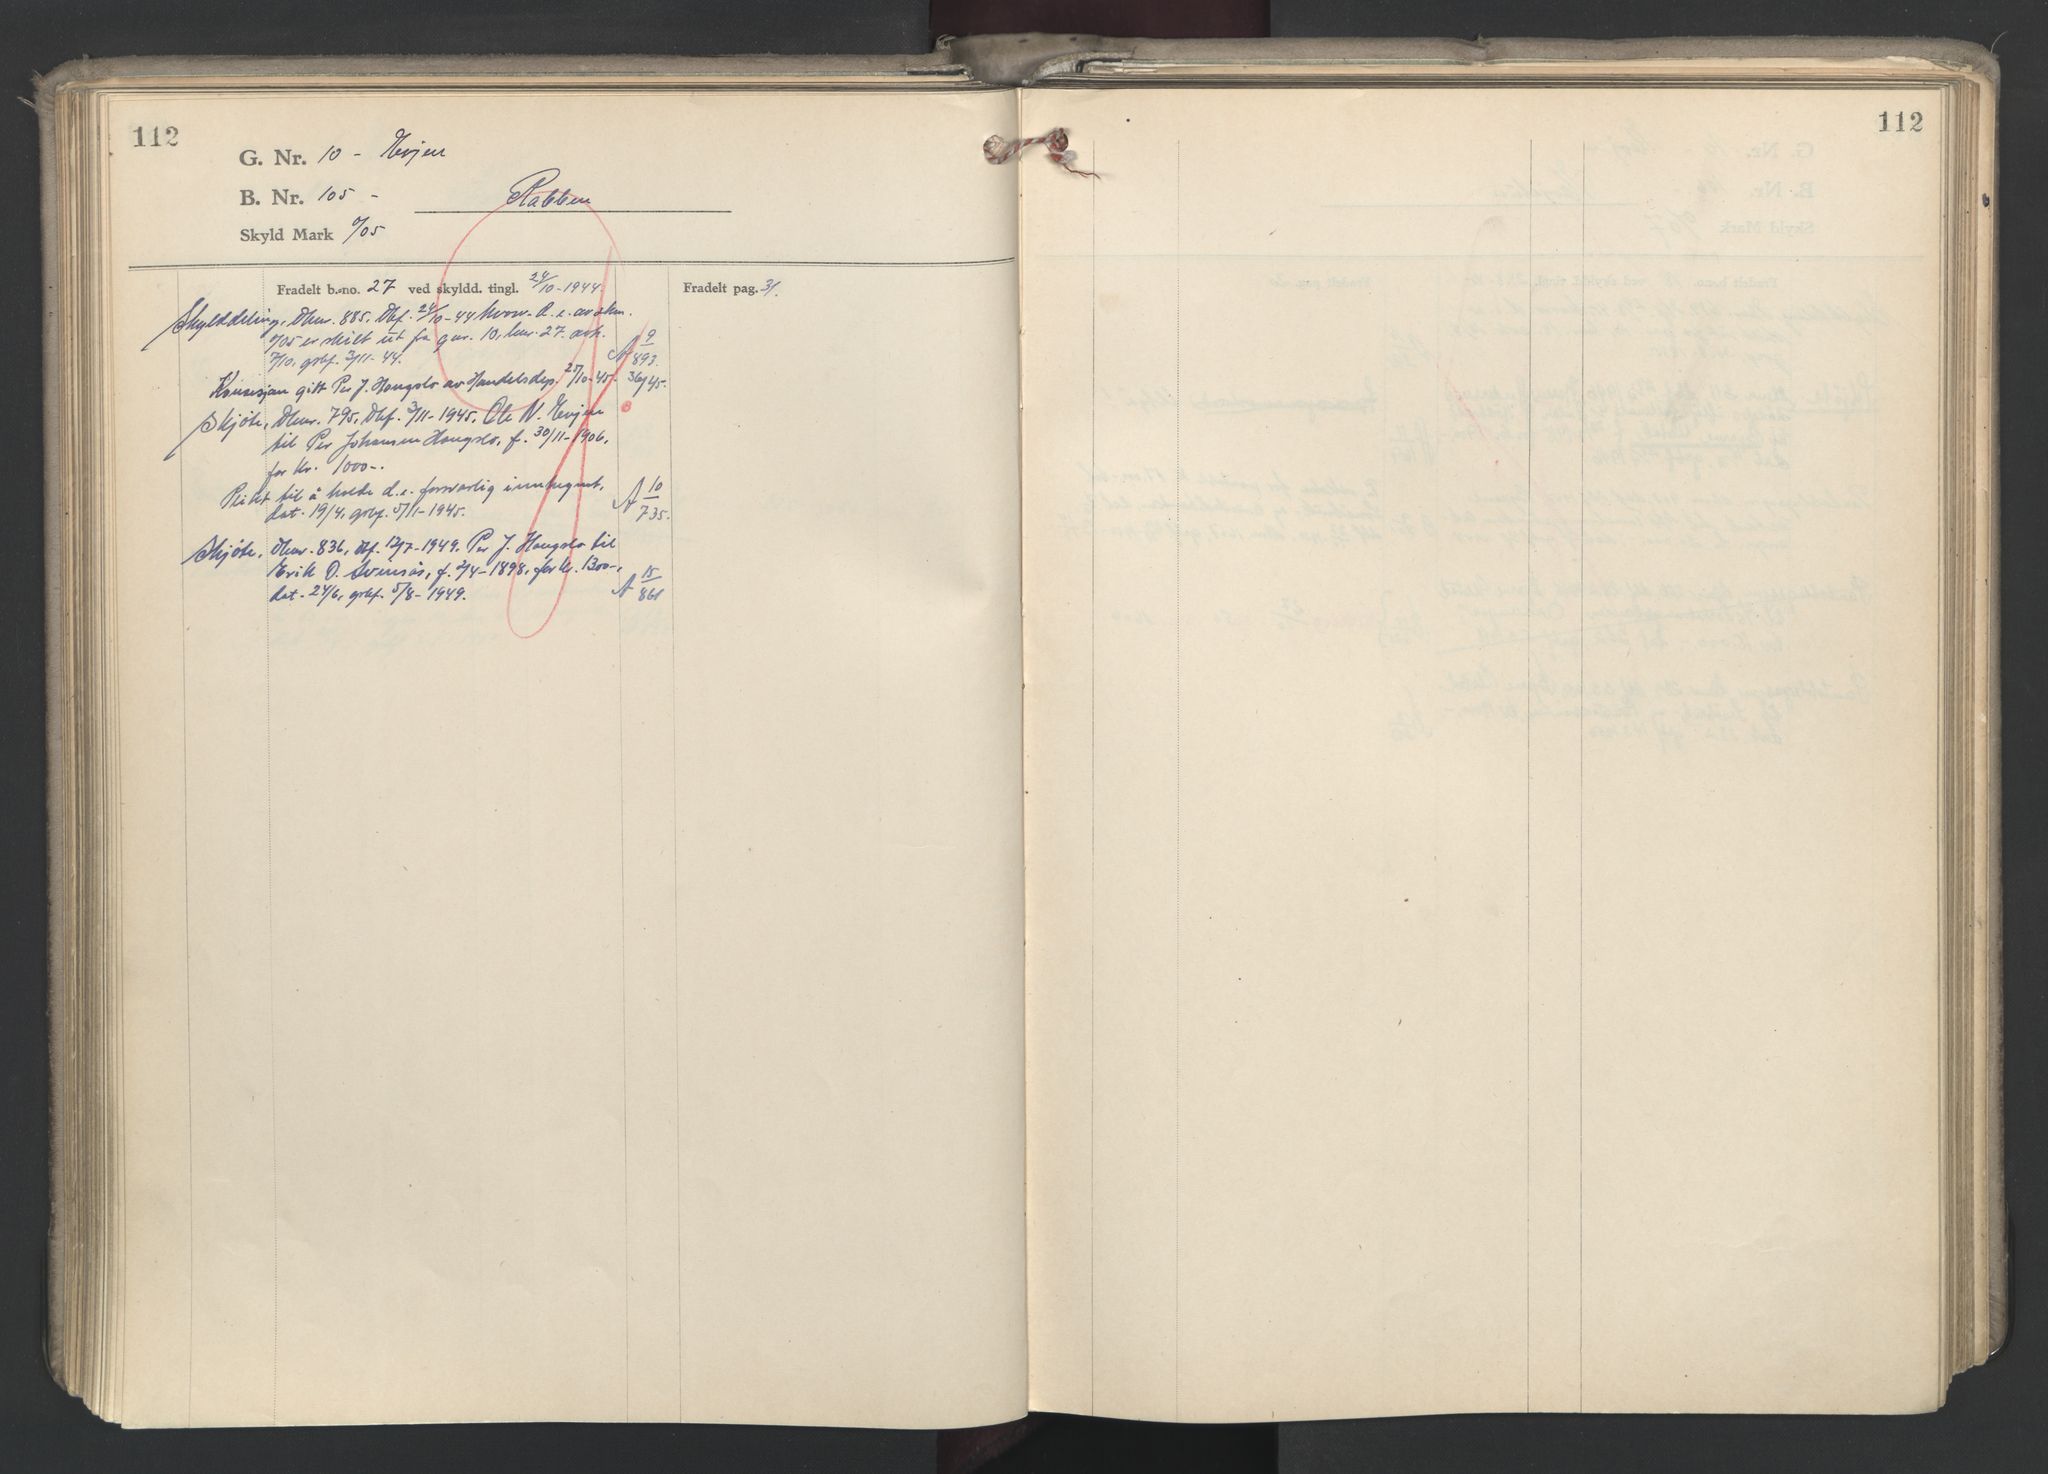 112
G. Nr. 10 - Evjen
B. Nr. 105 - Rabben
Skyld Mark 0/05
Fradelt b.-no. 27 ved skyldd. tingl. 24/10-1944. Fradelt pag. 31.
Skylddeling, Dbnr. 885, Dbf. 24/10-44 hvor. d. e. av skm.
0/05 er skilt ut fra gnr. 10, bnr. 27. avh.
7/10, grbf. 3/11-44. A 9/893.
Konsesjon gitt Per J. Haugslo av Handelsdep. 25/10-45. 369/45.
Skjøte, Dbnr. 795, Dbf. 3/11-1945, Ole N. Evjen
til Per Johansen Haugslo, f. 30/11-1906,
for kr. 1000-.
Plikt til å holde d. e. forsvarlig innhegnt,
dat. 19/4, grbf. 5/11-1945. A 10/735.
Skjøte, Dbnr. 836, Dbf. 12/7-1949. Per J. Haugslo til
Erik O. Svinsås, f. 2/4-1898, for kr. 1300-,
dat. 24/6, grbf. 5/8-1949. A 15/861
112